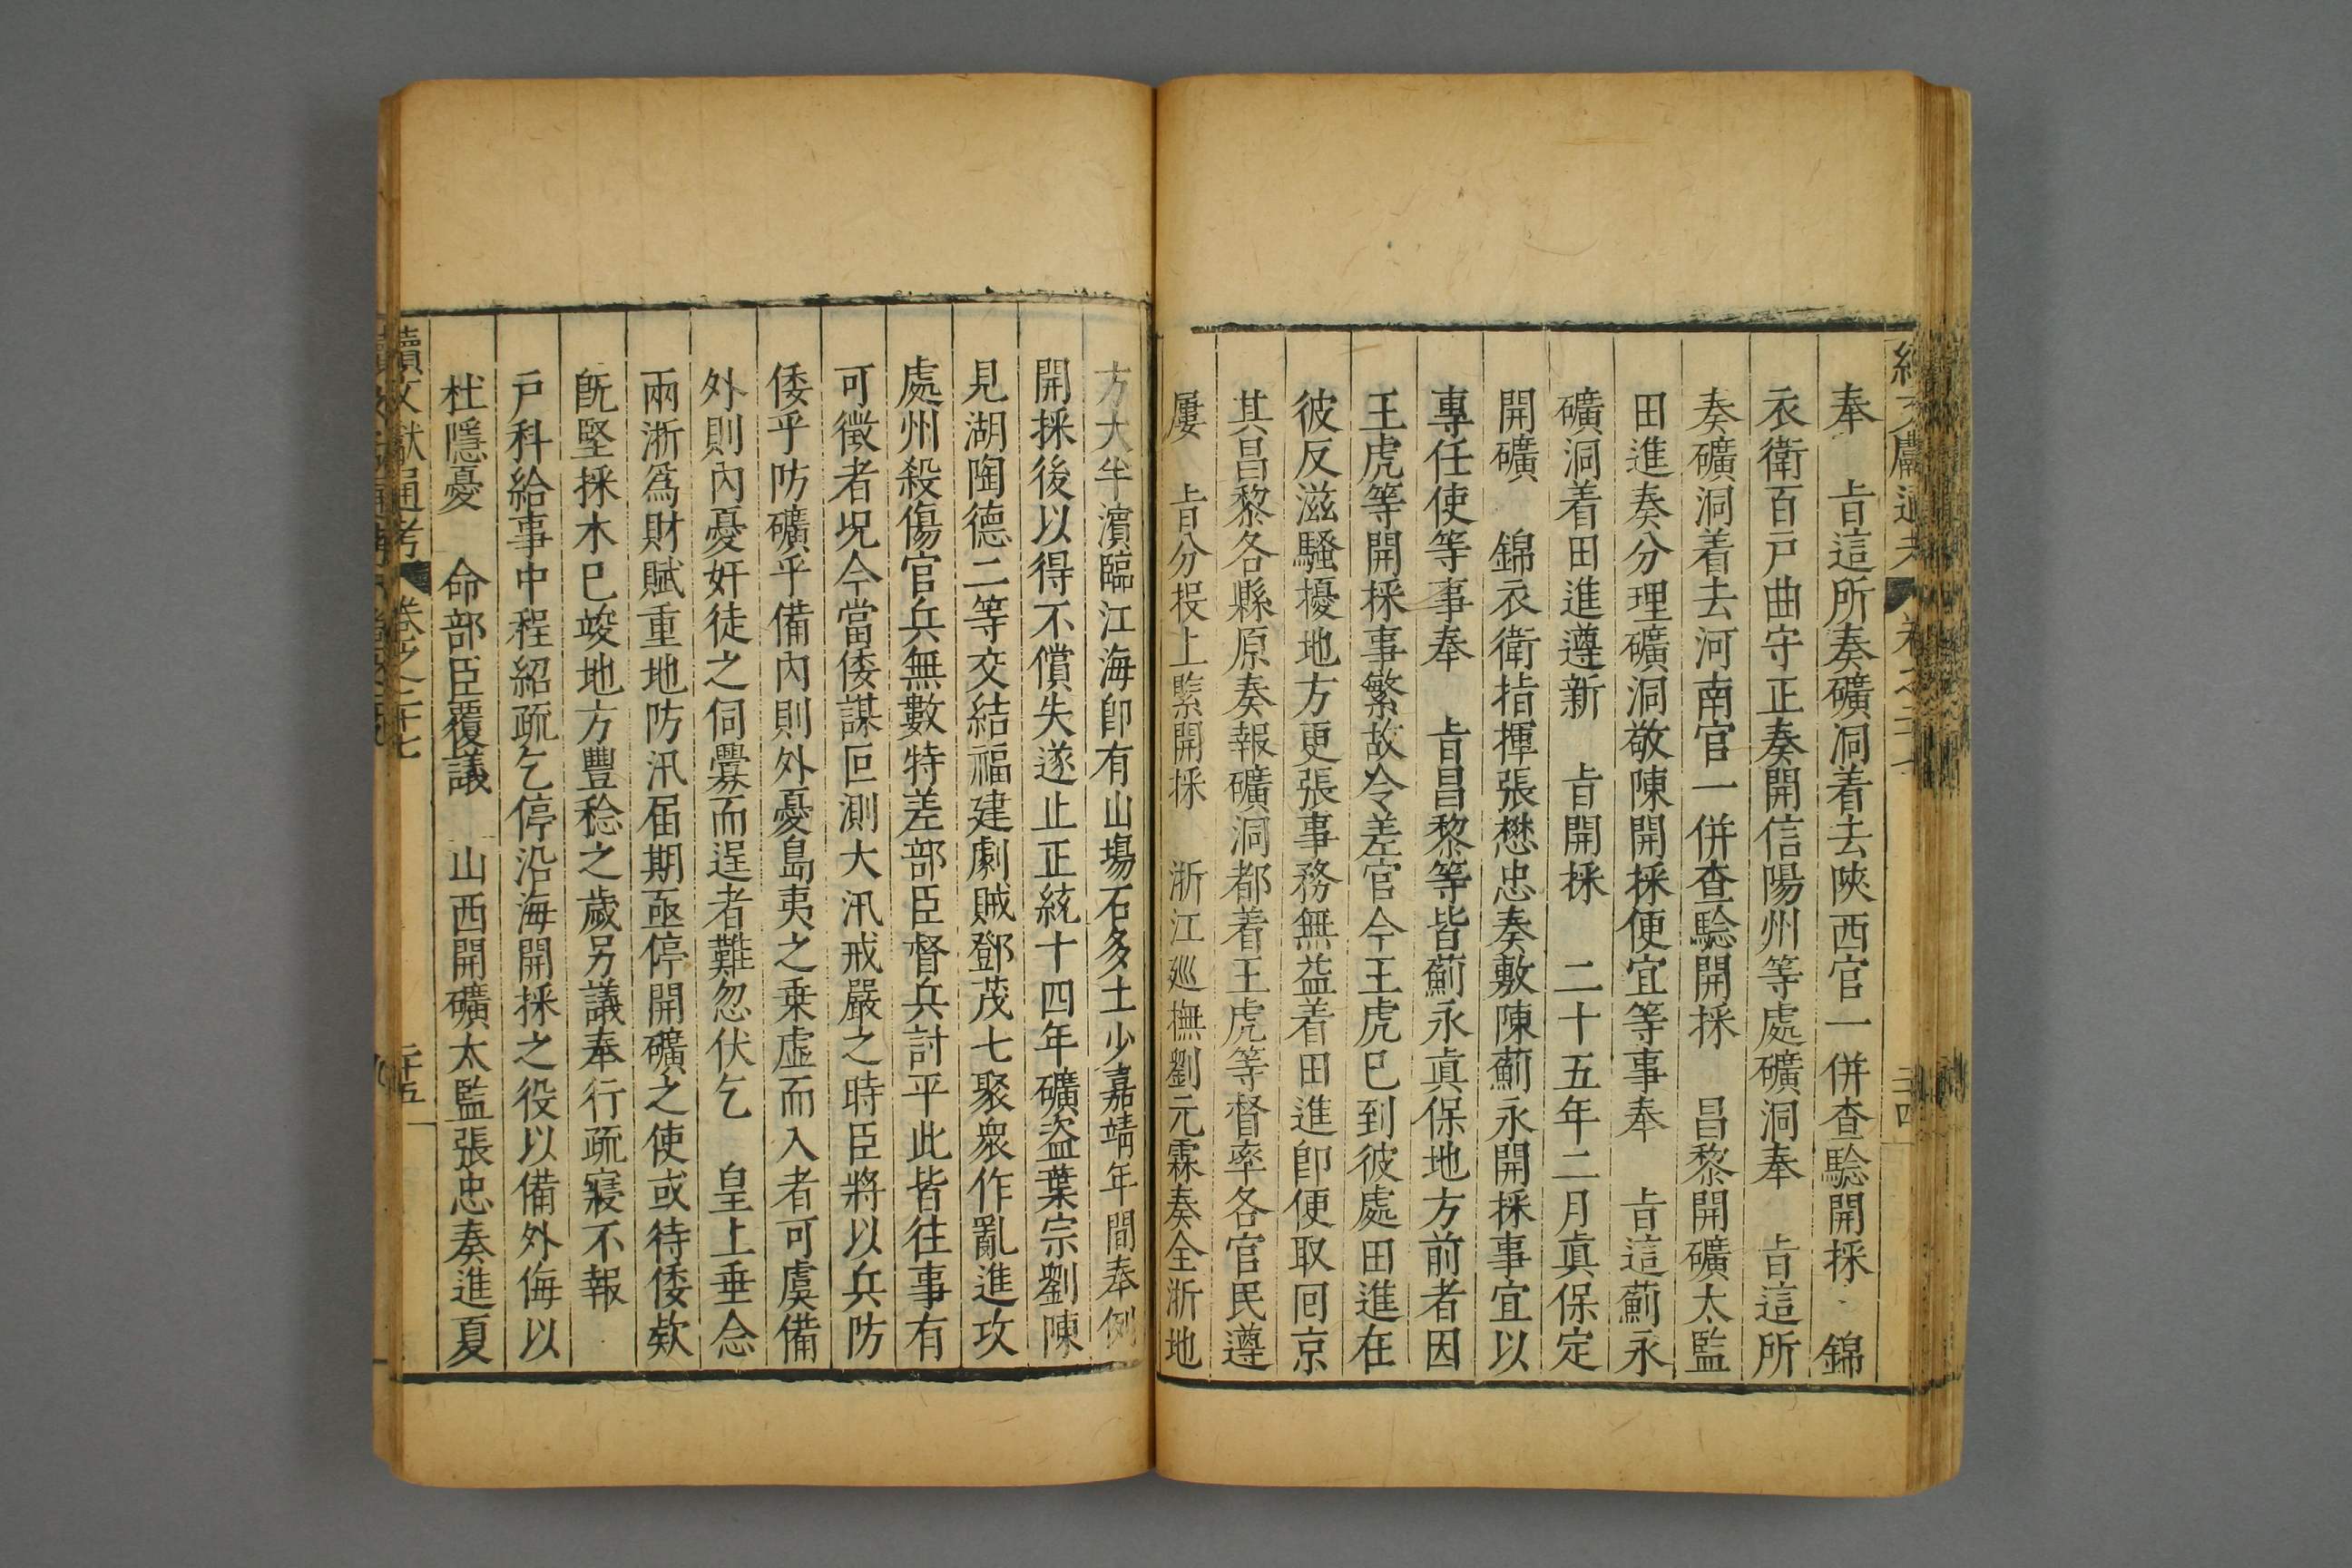 奉　旨這所奏礦洞着去陝西官一併查驗開採　錦
衣衛百戸曲守正奏開信陽州等處礦洞奉　旨這所
奏礦洞着去河南官一併查驗開採　昌黎開礦太監
田進奏分理礦洞敬陳開採便宜等事奉　旨這薊永
礦洞着田進遵新　旨開採　二十五年二月真保定
開礦　錦衣衛指揮張懋忠奏敷陳薊永開採事宜以
專任使等事奉　旨昌黎等皆薊永真保地方前者因
王虎等開採事繁故令差官今王虎巳到彼處田進在
彼反滋騷擾地方更張事務無益着田進卽便取囘京
其昌黎各縣原奏報礦洞都着王虎等督率各官民遵
屢　旨分投上緊開採　浙江廵撫劉元霖奏全浙地
方大半濱臨江海卽有山塲石多土少嘉靖年間奉例
開採後以得不償失遂止正統十四年礦盜葉宗劉陳
見湖陶德二等交結福建劇賊鄧茂七聚衆作亂進攻
處州殺傷官兵無數特差部臣督兵討平此皆往事有
可徵者况今當倭謀叵測大汛戒嚴之時臣將以兵防
倭乎防礦乎備內則外憂島夷之乗虛而入者可虞備
外則內憂奸徒之伺釁而逞者難忽伏乞　皇上垂念
兩浙爲財賦重地防汛届期亟停開礦之使或待倭欵
旣堅採木巳竣地方豐稔之歲另議奉行疏寢不報
戸科給事中程紹疏乞停沿海開採之役以備外侮以
杜隱憂　命部臣覆議　山西開礦太監張忠奏進夏
續文獻通考　卷之二十七　二十五